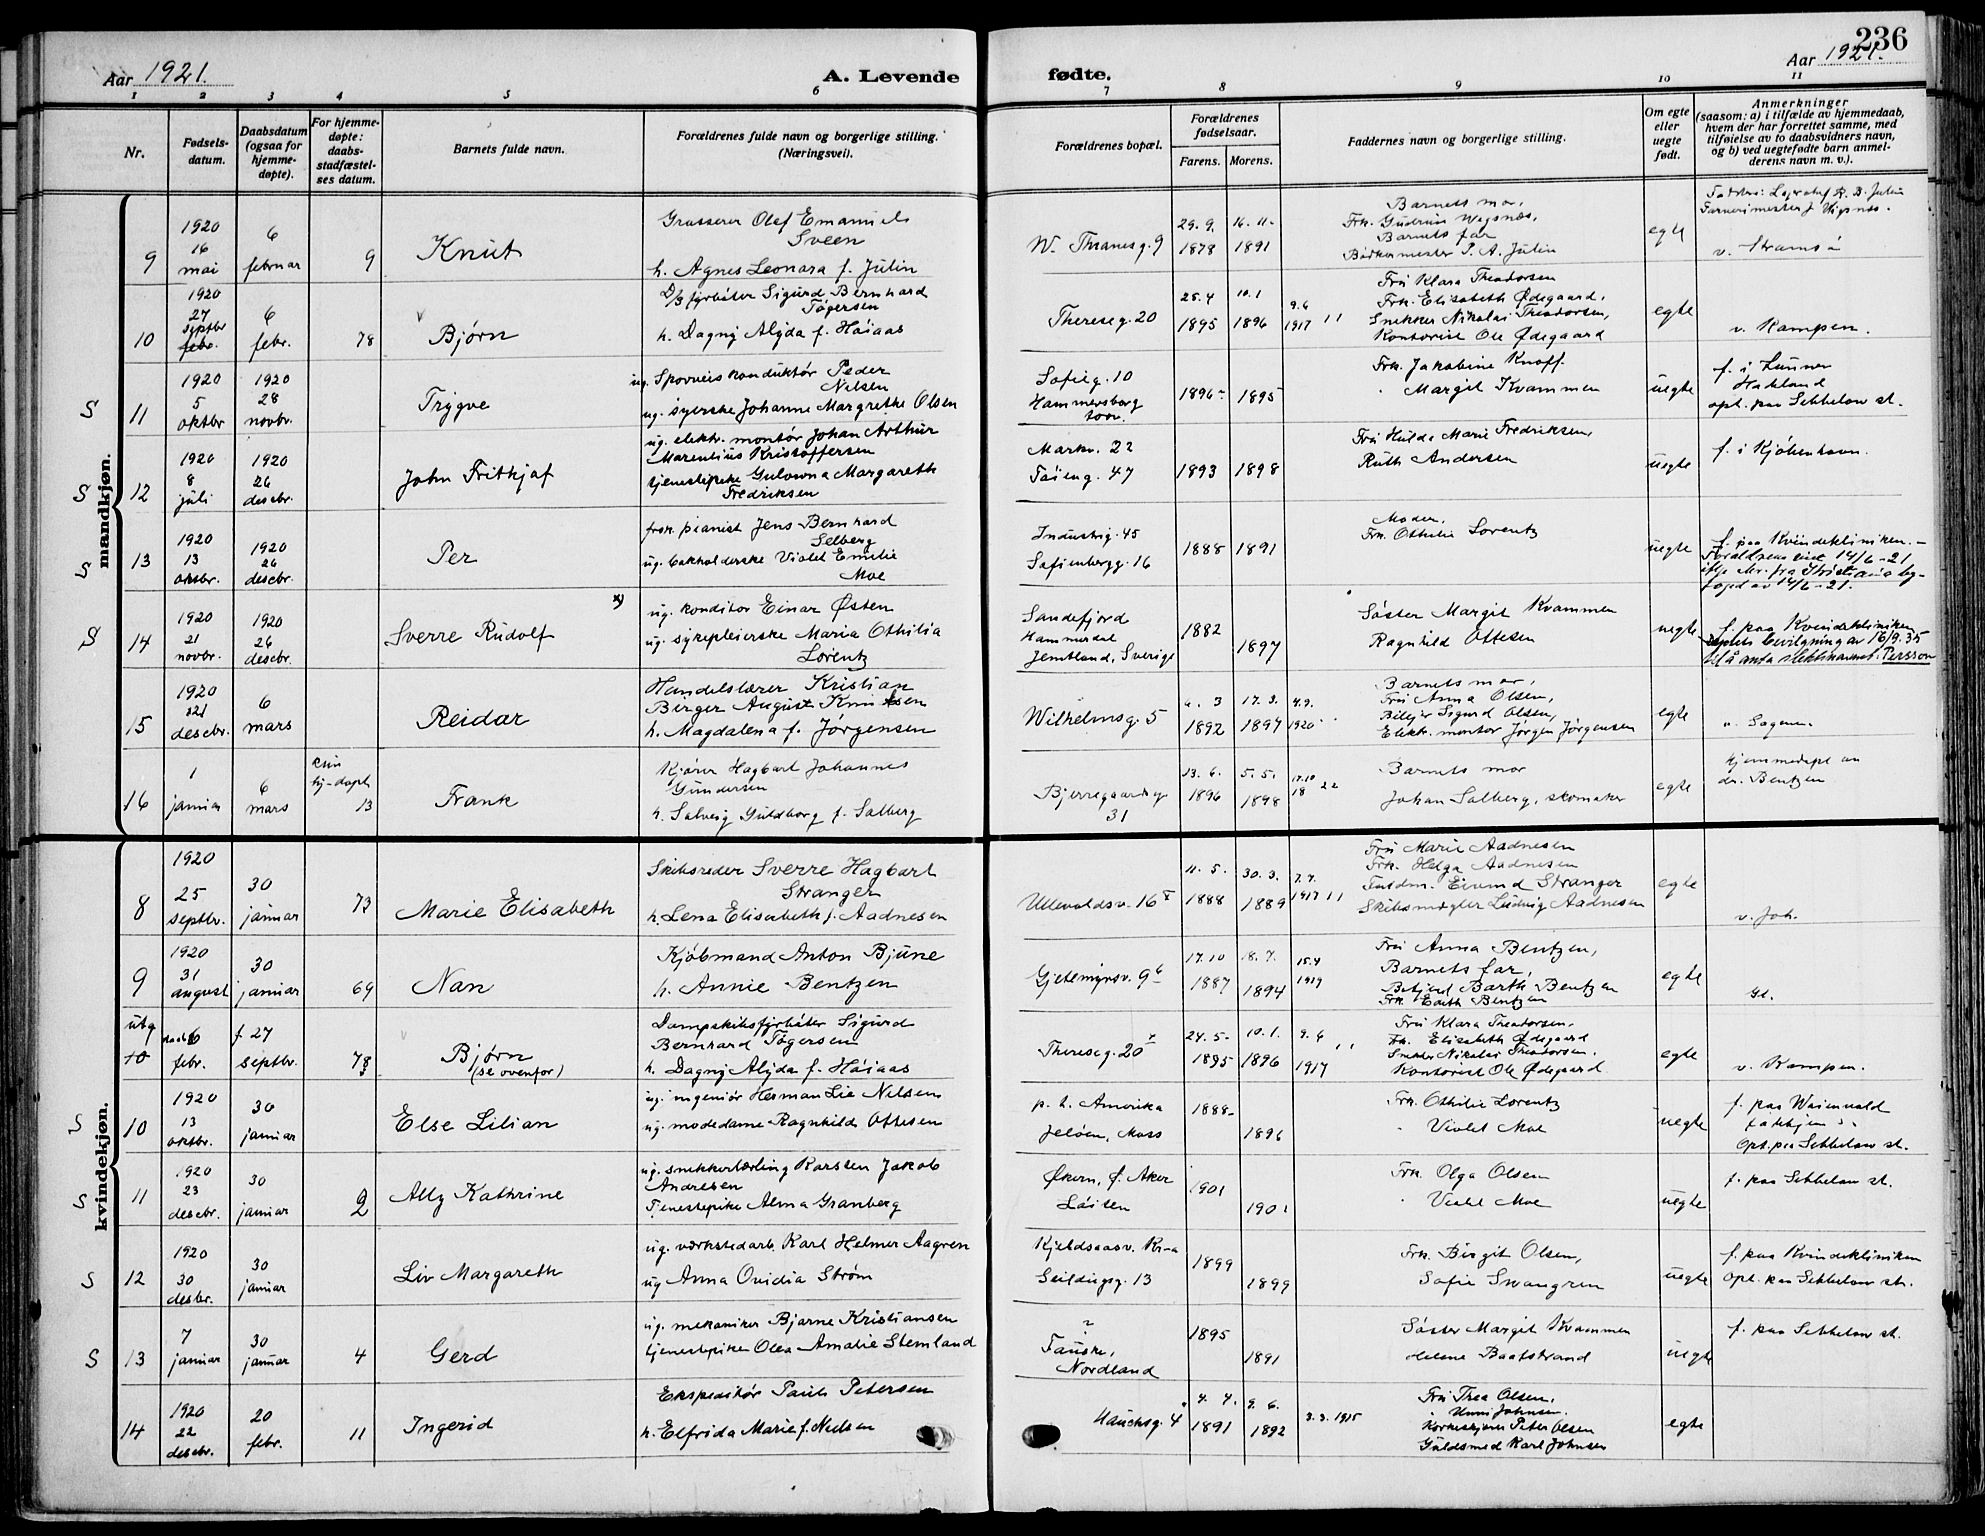 236
Aar 1921.
A. Levende fødte.
Aar 1921.
1 2 3 4 5 6 7 8 9 10 11
Nr.
Fødsels-
datum.
Daabsdatum
(ogsaa for
hjemme-
døpte).
For hjemme-
døpte:
daabs-
stadfæstel-
ses datum.
Barnets fulde navn.
Forældrenes fulde navn og borgerlige stilling.
(Næringsvei).
Forældrenes bopæl.
Forældrenes
fødselsaar.
Farens. Morens.
Faddernes navn og borgerlige stilling.
Om egte
eller
uegte
født.
Anmerkninger
(saasom: a) i tilfælde av hjemmedaab,
hvem der har forrettet samme, med
tilføielse av to daabsvidners navn,
og b) ved uegtefødte barn anmel-
derens navn m. v.).
mandkjøn.
9
1920
16
mai
6
februar
9
Knut
Grosserer Olef Emanuel
Sveen
h. Agnes Leonara f. Julin
W. Thranesg. 9
29.9. 16.11.
1878 1891
Barnets mor,
Frk. Gudrun Wigsnæs,
Barnets far
Bødkermester P. A. Julin
egte
v. Strømsø
10
1920
27
septbr
febr.
6
febr.
78
Bjørn
D/S fyrbøter Sigurd Bernhard
Tøgersen
h. Dagny Alyda f. Høiaas
Thereseg. 20
25.4 10.1
1895 1896
9.6
1917
Fru Klara Theodorsen
Frk. Elisabeth Ødegaard,
Snekker Nikolai Theodorsen,
Kontorist Ole Ødegaard
egte
v. Kampen.
S
11
1920
5
oktbr
1920
28
novbr.
Trygve
ug. Sporveiskonduktør Peder
Nilsen
ug. syerske Johanne Margrethe Olsen
Sofieg. 10
Hammersborg
torv.
1896 1895
Frk. Jakobine Knoff.
" Margit Kvammen
uegte
f. i Lunner
Hakland
opt. paa Sebbelow st.
S
12
1920
8
juli
1920
26
desebr.
John Frithjof
ug. elektr. montør Johan Arthur
Marentius Kristoffersen
tjenestepike Gulovna Margareth
Fredriksen
Markv. 22
Tøieng. 47
1893 1898
Fru Hulda Marie Fredriksen,
Ruth Andersen
uegte
f. i Kjøbenhavn.
S
13
1920
13
oktbr.
1920
26
desebr.
Per
frsk. pianist Jens Bernhard
Selberg
ug. bokholderske Violet Emilie
Moe
Industrig. 45
Sofienbergg. 16
1888 1891
Moder,
Frk. Othilie Lorentz
uegte
f. paa Kvindekliniken.
S
14
1920
21
novbr.
1920
26
desebr.
Sverre Rudolf
x)
ug. konditor Einar Østen
ug. sykepleierske Maria Othilia
Lorentz
Sandefjord
Hammerdal
Jemtland, Sverige
1882
1897
Søster Margit Kvammen
Ragnhild Ottesen
uegte
f. paa Kvindekliniken
bevilgning av 16/9.35
til å anta slektsnavnet: Persson
15
1920
21
desebr.
6
mars
Reidar
Handelslærer Kristian
Birger August Knutsen
h. Magdalena f. Jørgensen
Wilhelmsg. 5
3 17.3.
1892 1897
4.9.
1920
Barnets mor,
Fru Anna Olsen,
Sigurd Olsen,
Elektr. montør Jørgen Jørgensen
egte
v. Sagene.
16
1
januar
6
mars
kun
hj-døpt
13
Frank
Kjører Hagbart Johannes
Gundersen
h. Solveig Guldborg f. Solberg
Bjerregaardsg
31
13.6. 5.5.
1896 1898
17.10
18 22
Barnets mor
Johan Solberg, skomaker
egte
hjemmedøpt av
dr. Bentzen
kvindekjøn.
8
1920
25
septbr.
30
januar
73
Marie Elisabeth
Skibsreder Sverre Hagbart
Stranger
h. Lena Elisabeth f. Aadnesen
Ullevoldsv. 16
11.5. 30.3.
1888 1889
7.7.
1917
Fru Marie Aadnesen
Frk. Helga Aadnesen
Eivind Stranger
Skibsmægler Ludvig Aadnesen
egte
v. Joh.
9
1920
31
august
30
januar
69
Nan
Kjøbmand Anton Bjune
h. Annie Bentzen
Gjetemyrsv. 9
17.10 8.7.
1887 1894
15.4
1919
Fru Anna Bentzen,
Barnets far,
Betjent Barth Bentzen
Frk. Edith Bentzen
egte
Gl.
utg
10
6
febr.
f. 27
septbr.
78
Bjørn
(se ovenfor)
Dampskibsfyrbøter Sigurd
Bernhard Tøgersen
h. Dagny Alyda f. Høiaas
Thereseg. 20
24.5. 10.1.
1895 1896
9.6
1917
Fru Klara Theodorsen,
Frk. Elisabeth Ødegaard
Snekker Nikolai Theodorsen.
Kontorist Ole Ødegaard
egte
v. Kampen.
S
10
1920
13
oktbr.
30
januar
Else Lilian
ug. ingeniør Herman Lie Nielsen
ug. modedame Ragnhild Ottesen
p. t. Amerika
Jeløen, Moss
1888
1896
Frk. Othilie Lorentz
" Violet Moe
uegte
f. paa
Opt. paa Sebbelow st.
S
11
1920
23
desebr.
30
januar
2
Ally Kathrine
ug. snekkerlærling Karsten Jakob
Andresen
Tjenestepike Alma Granberg
Økern, Ø. Aker
Løiten
1901
1901
Frk. Olga Olsen
" Violet Moe
uegte
f. paa Sebbelow st.
S
12
1920
30
desbr.
30
januar
Liv Margareth
ug. værkstedarb. Karl Helmer Aagren
ug Anna Ovidia Strøm
Kjeldsaasv. Kr-a
Seildugsg. 13
1899
1899
Frk. Birgit Olsen,
Sofie Swangren
uegte
f. paa Kvindekliniken
Opt. paa Sebbelow st.
S
13
7
januar
30
januar
4
Gerd
ug. mekaniker Bjarne Kristiansen
tjenestepike Olea Amalie Stemland
?
Fauske,
Nordland
1895
1891
Søster Margit Kvammen
Helene Baatstrand
uegte
f. paa Sebbelow st.
14
1920
22
desebr.
20
febr.
11
Ingerid
Ekspeditør Pauls Petersen
h. Elfrida Marie f. Nielsen
Hauchsg. 4
4.7. 9.6.
1891 1892
3.3.1915
Fru Thea Olsen,
" Unni Johnsen.
Peter Olsen
Guldsmed Karl Johnsen
egte